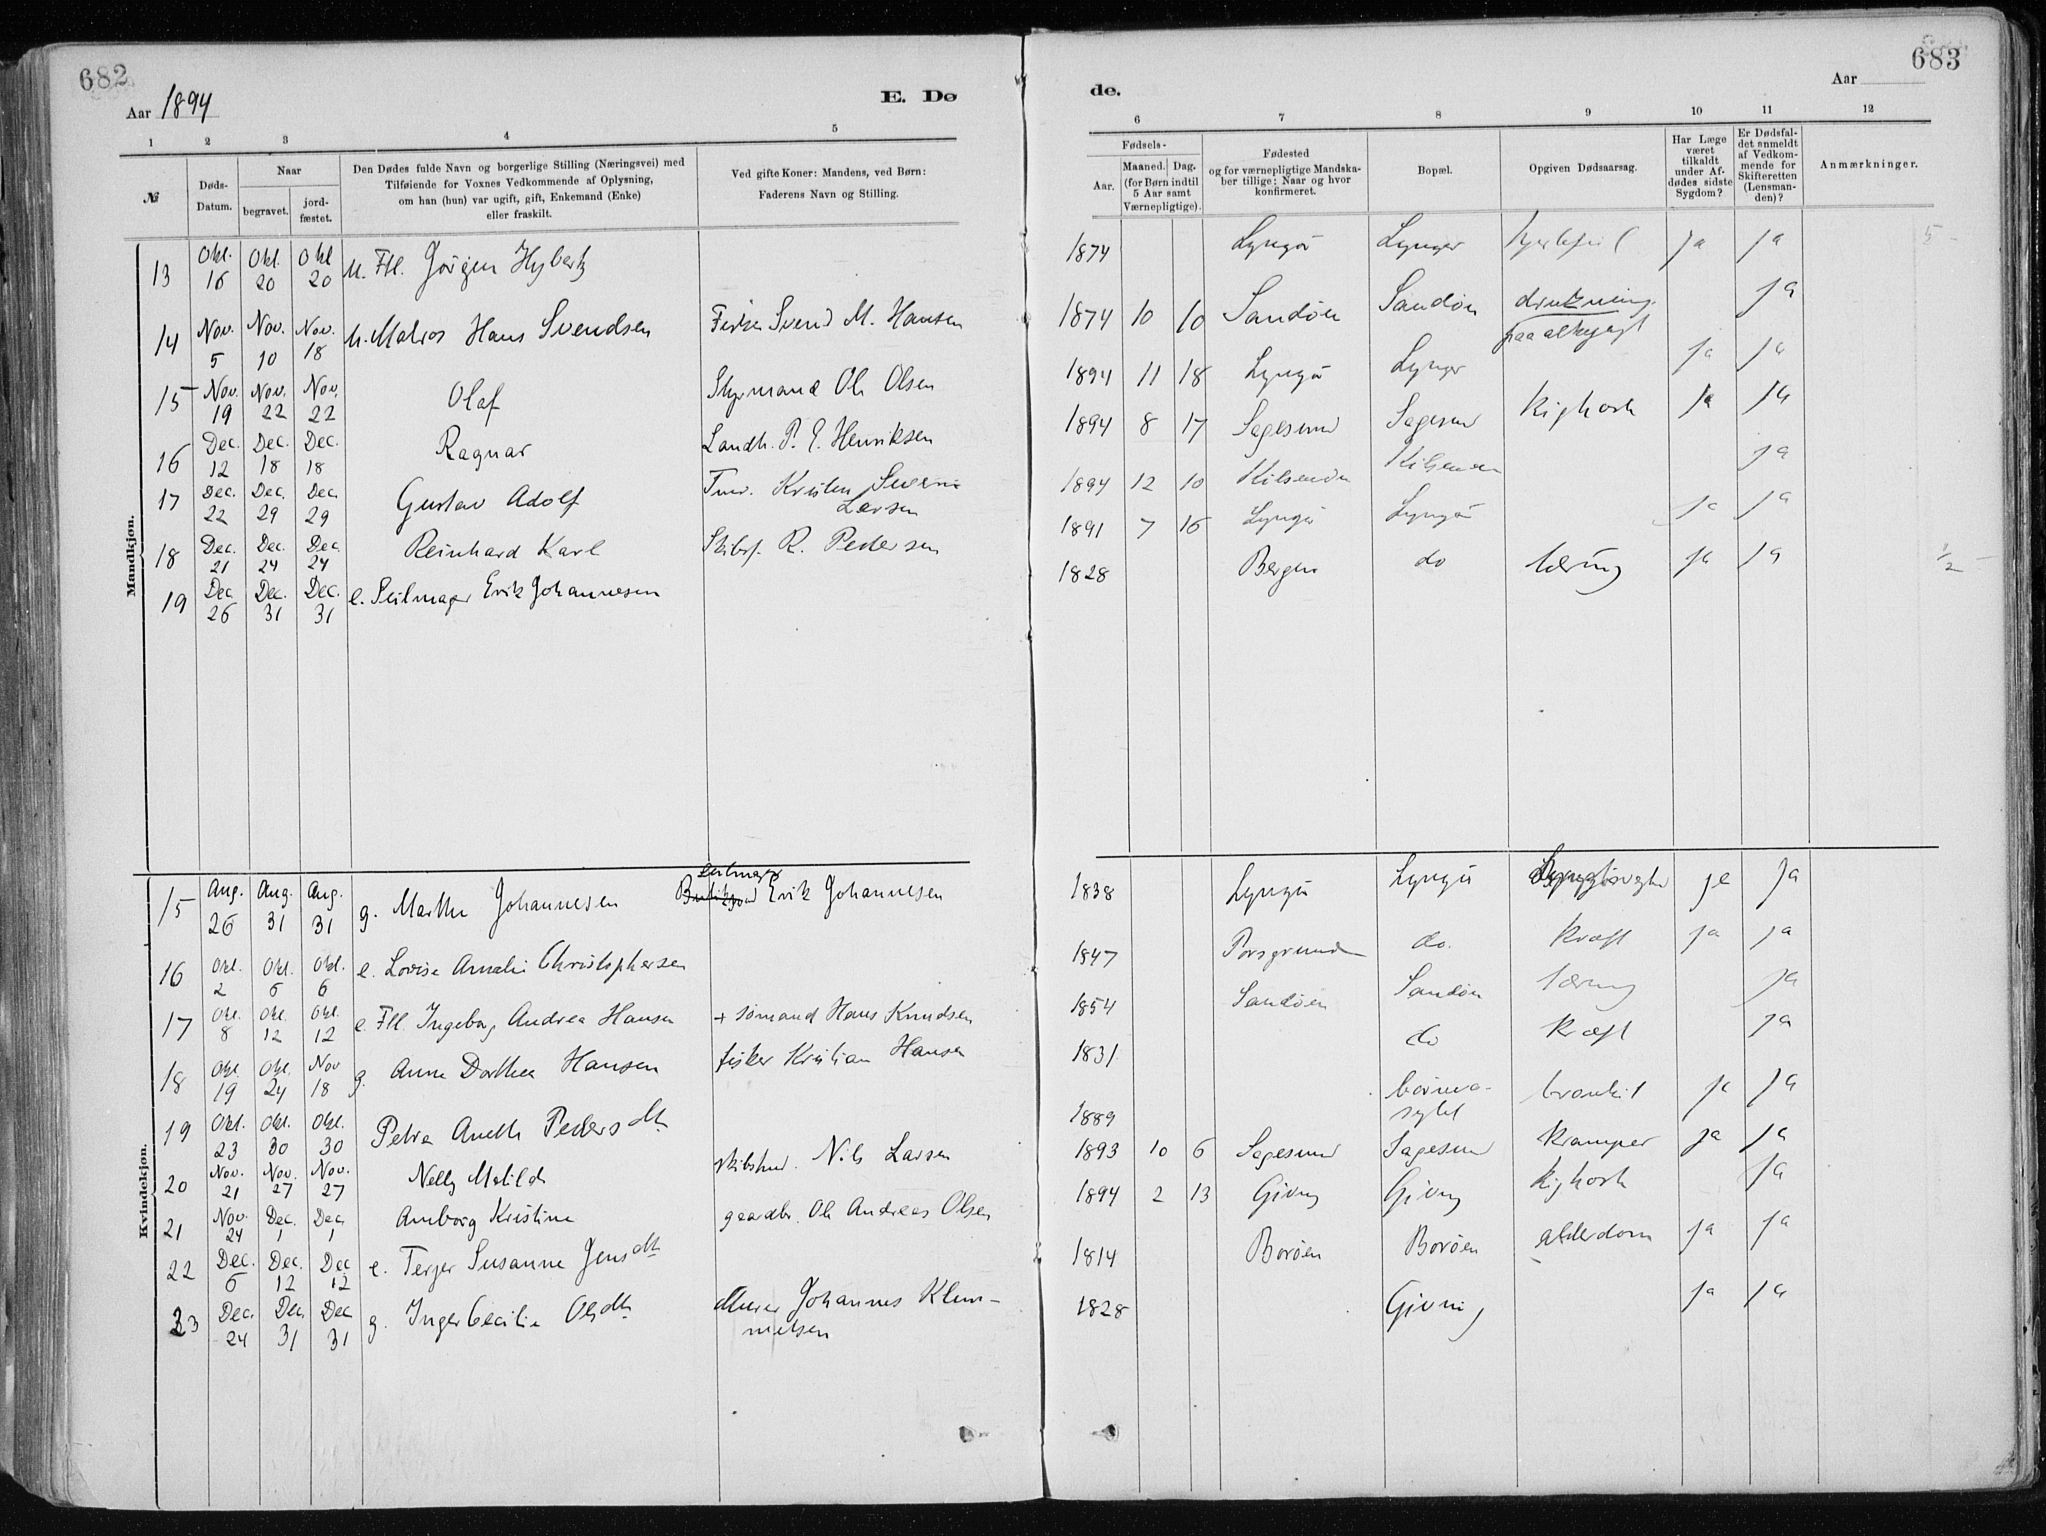 682
Aar 1894
E. Dø
de.
Aar
683
1 2 3 4 5
6 7 8 9 10 11 12
№
Døds-Datum.
Naar
begravet.
jord-fæstet.
Den Dødes fulde Navn og borgerlige Stilling (Næringsvei) med
Tilføiende for Voxnes Vedkommende af Oplysning,
om han (hun) var ugift, gift, Enkemand (Enke)
eller fraskilt.
Ved gifte Koner: Mandens, ved Børn:
Faderens Navn og Stilling.
Fødsels-
Aar.
Maaned. Dag.
(for Børn indtil
5 Aar samt
Værnepligtige).
Fødested
og for værnepligtige Mandska-
ber tillige: Naar og hvor
konfirmeret.
Bopæl.
Opgiven Dødsaarsag.
Har Læge
været
tilkaldt
under Af-
dødes sidste
Sygdom?
Er Dødsfal-
det anmeldt
af Vedkom-
mende for
Skifteretten
(Lensman-
den)?
Anmærkninger.
Mandkjøn.
13 Okt. 16 Okt. 20 Okt 20 u. Ftl. Jörgen Hybertz 1874 Lyngör Lyngör hjertefeil ja ja 5 -
14 Nov. 5 Nov. 10 Nov. 18 u. Matros Hans Svendsen Fisker Svend M. Hansen 1874 10 10 Sandöen Sandöen drukning ja
paa alkejagt
15 Nov. 19 Nov. 22 Nov. 22 Olaf Styrmand Ole Olsen 1894 11 18 Lyngör Lyngör ja ja
16 Dec. 12 Dec. 18 Dec. 18 Ragnar Landh. P. E. Henriksen 1894 8 17 Sagesund Sagesund kighoste ja ja
17 Dec. 22 Dec. 29 Dec. 29 Gustav Adolf Tmr. Kristen Severin
Larsen 1894 12 10 ja
18 Dec. 21 Dec. 24 Dec. 24 Reinhard Karl Skibsf. R. Pedersen 1891 7 16 Lyngör Lyngör ja ja
19 Dec 26 Dec. 31 Dec. 31 e. Seilmager Erik Johannesen 1828 Bergen do tæring ja ja 1/2 -
Kvindekjøn.
15 Aug. 26 Aug. 31 Aug. 31 g. Marthe Johannesen Seilmager Erik Johannesen 1838 Lyngör Lyngör ja ja
16 Okt. 2 Okt. 6 Okt. 6 e. Lovise Amalie Christophersen 1847 Porsgrund do. kræft ja ja
17 Okt. 8 Okt. 12 Okt. 12 e. Ftl. Ingeborg Andrea Hansen + sömand Hans Knudsen 1854 Sandöen Sandöen tæring ja
18 Okt 19 Okt. 24 Nov 18 g. Anne Dorthea Hansen fisker Kristian Hansen 1831 do kræft ja
19 Okt. 23 Okt. 30 Okt. 30 Petra Anette Pedersdtr 1889 börnea-
sylet bronkit ja ja
20 Nov. 21 Nov. 27 Nov. 27 Nelly Matilde skibstmd. Nils Larsen 1893 10 6 Sagesund Sagesund kramper ja ja
21 Nov. 24 Dec. 1 Dec. 1 Amborg Kristine gaardbr. Ole Andreas Olsen 1894 2 13 Givng Givng kighoste ja
22 Dec. 6 Dec. 12 Dec 12 e. Terjer Susanne Jensdtr 1814 Boröen Boröen alderdom ja ja
23 Dec. 24 Dec. 31 Dec 31 g. Inger Cecilie Olsdtr Murer Johannes Klem-
metsen 1828 Givning ja ja